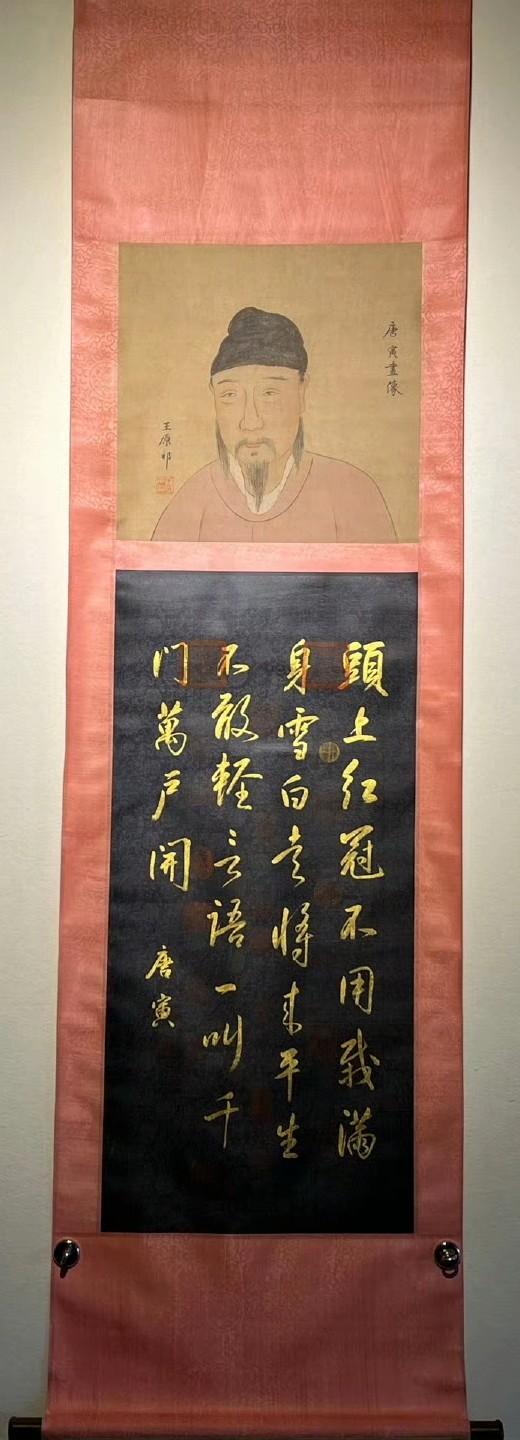 唐寅畫像
王原祁
頭上红冠不用裁滿
身雪白走將来平生
不敢軽言語一叫千
门萬户開
唐寅